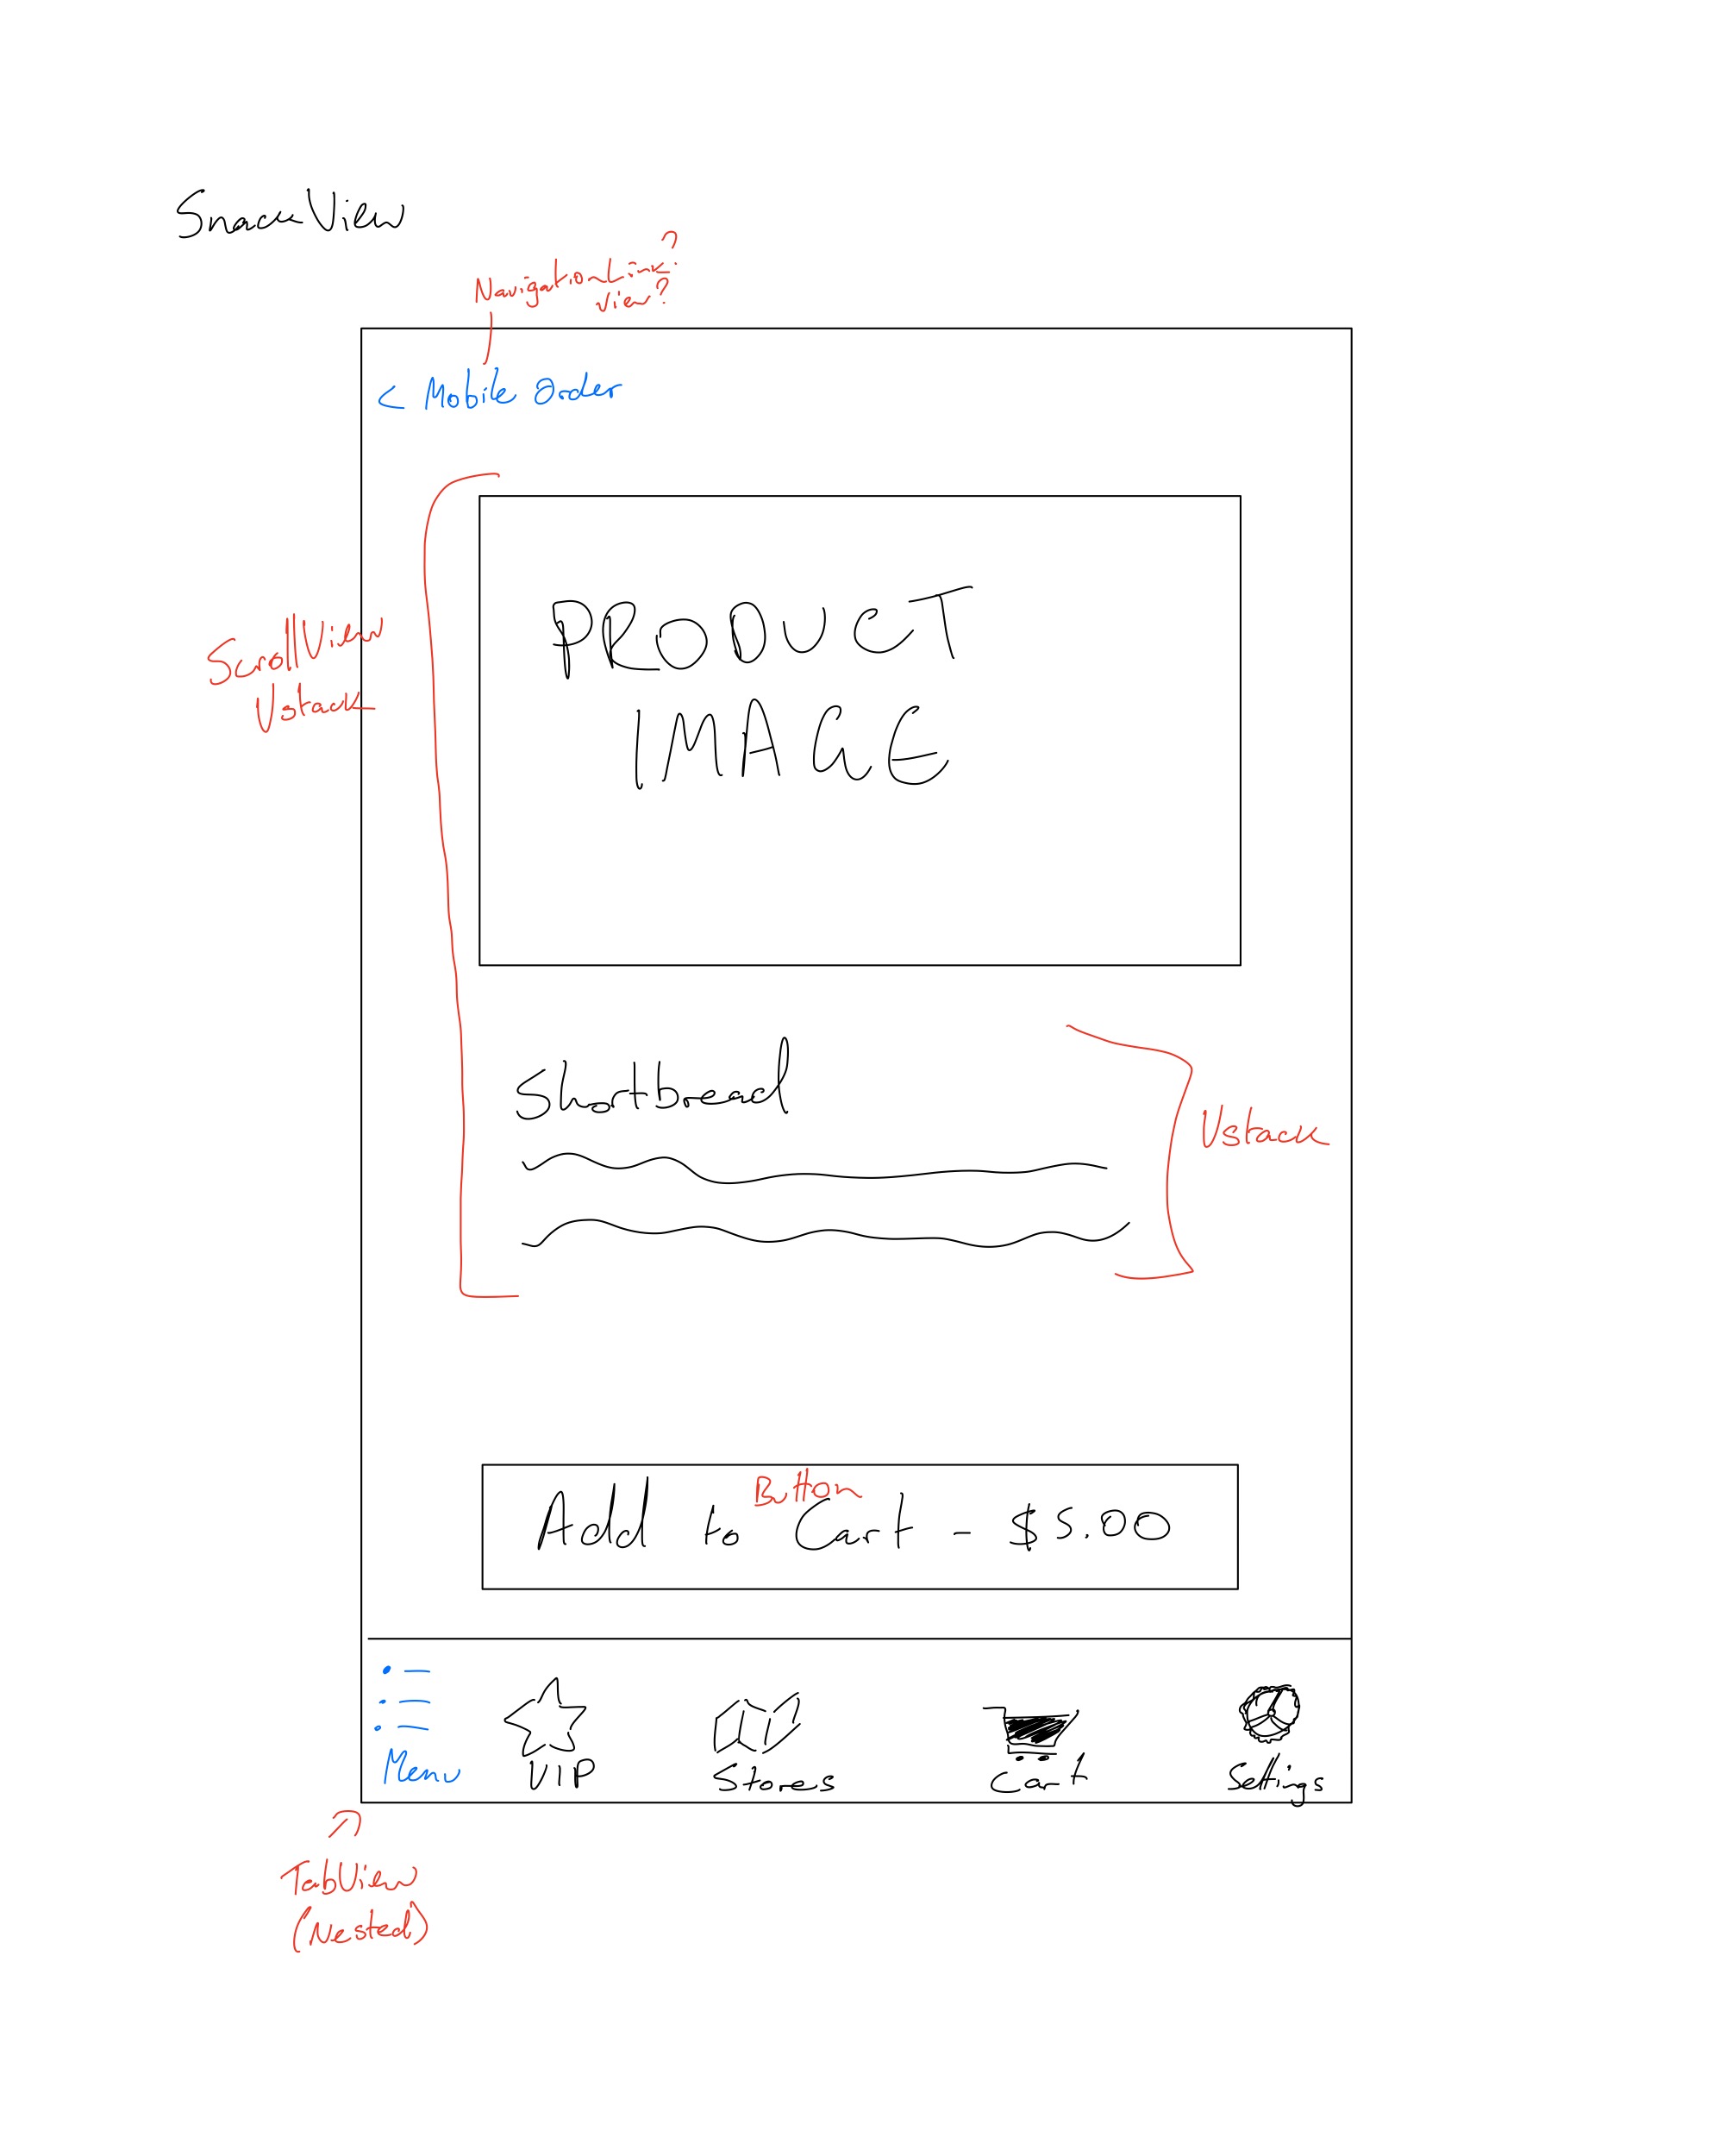 SnackView
NavigationLink?
View?
< Mobile Order
PRODUCT
IMAGE
ScrollView
Vstack
Shortbread
Vstack
Button
Add to Cart - $5.00
Menu
VIP
Stores
Cart
Settings
TabView
(Nested)